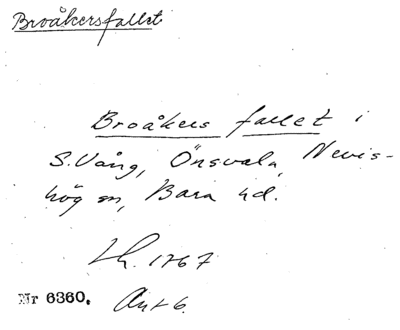 Broåkersfallet
Broåkers fallet i
S. Vång, Önsvala, Nevis-
hög sn, Bara hd.
Lh. 1767
Nr 6360. Avt 6.